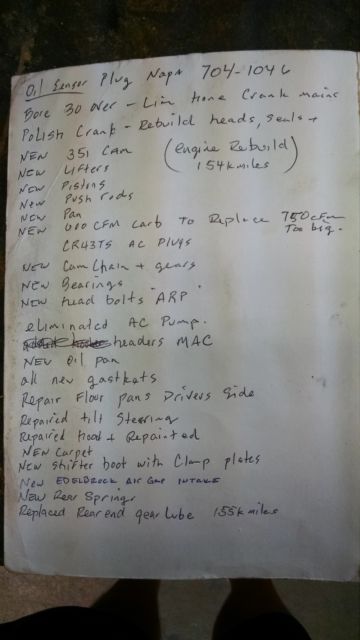 Oil Sensor Plug Napa 704-1046
Bore 30 over - Line Hone Crank mains
Polish Crank - Rebuild heads, seals +
NEW 351 Cam (engine Rebuild)
NEW Lifters 154k miles
NEW Pistons
New Push rods
NEW Pan
NEW 600 CFM Carb to Replace 750 cfm
Too big.
CR43TS AC Plugs
NEW Cam Chain + gears
NEW Bearings
NEW head bolts "ARP"
eliminated AC Pump.
headers MAC
NEW Oil pan
all new gastkets
Repair Floor pans Drivers Side
Repaired tilt Steering
Repaired hood + Repainted
NEW Carpet
New shifter boot with Clamp plates
NEW EDELBROCK AIR GAP INTAKE
NEW Rear Springs
Replaced Rear end gear Lube 155k miles